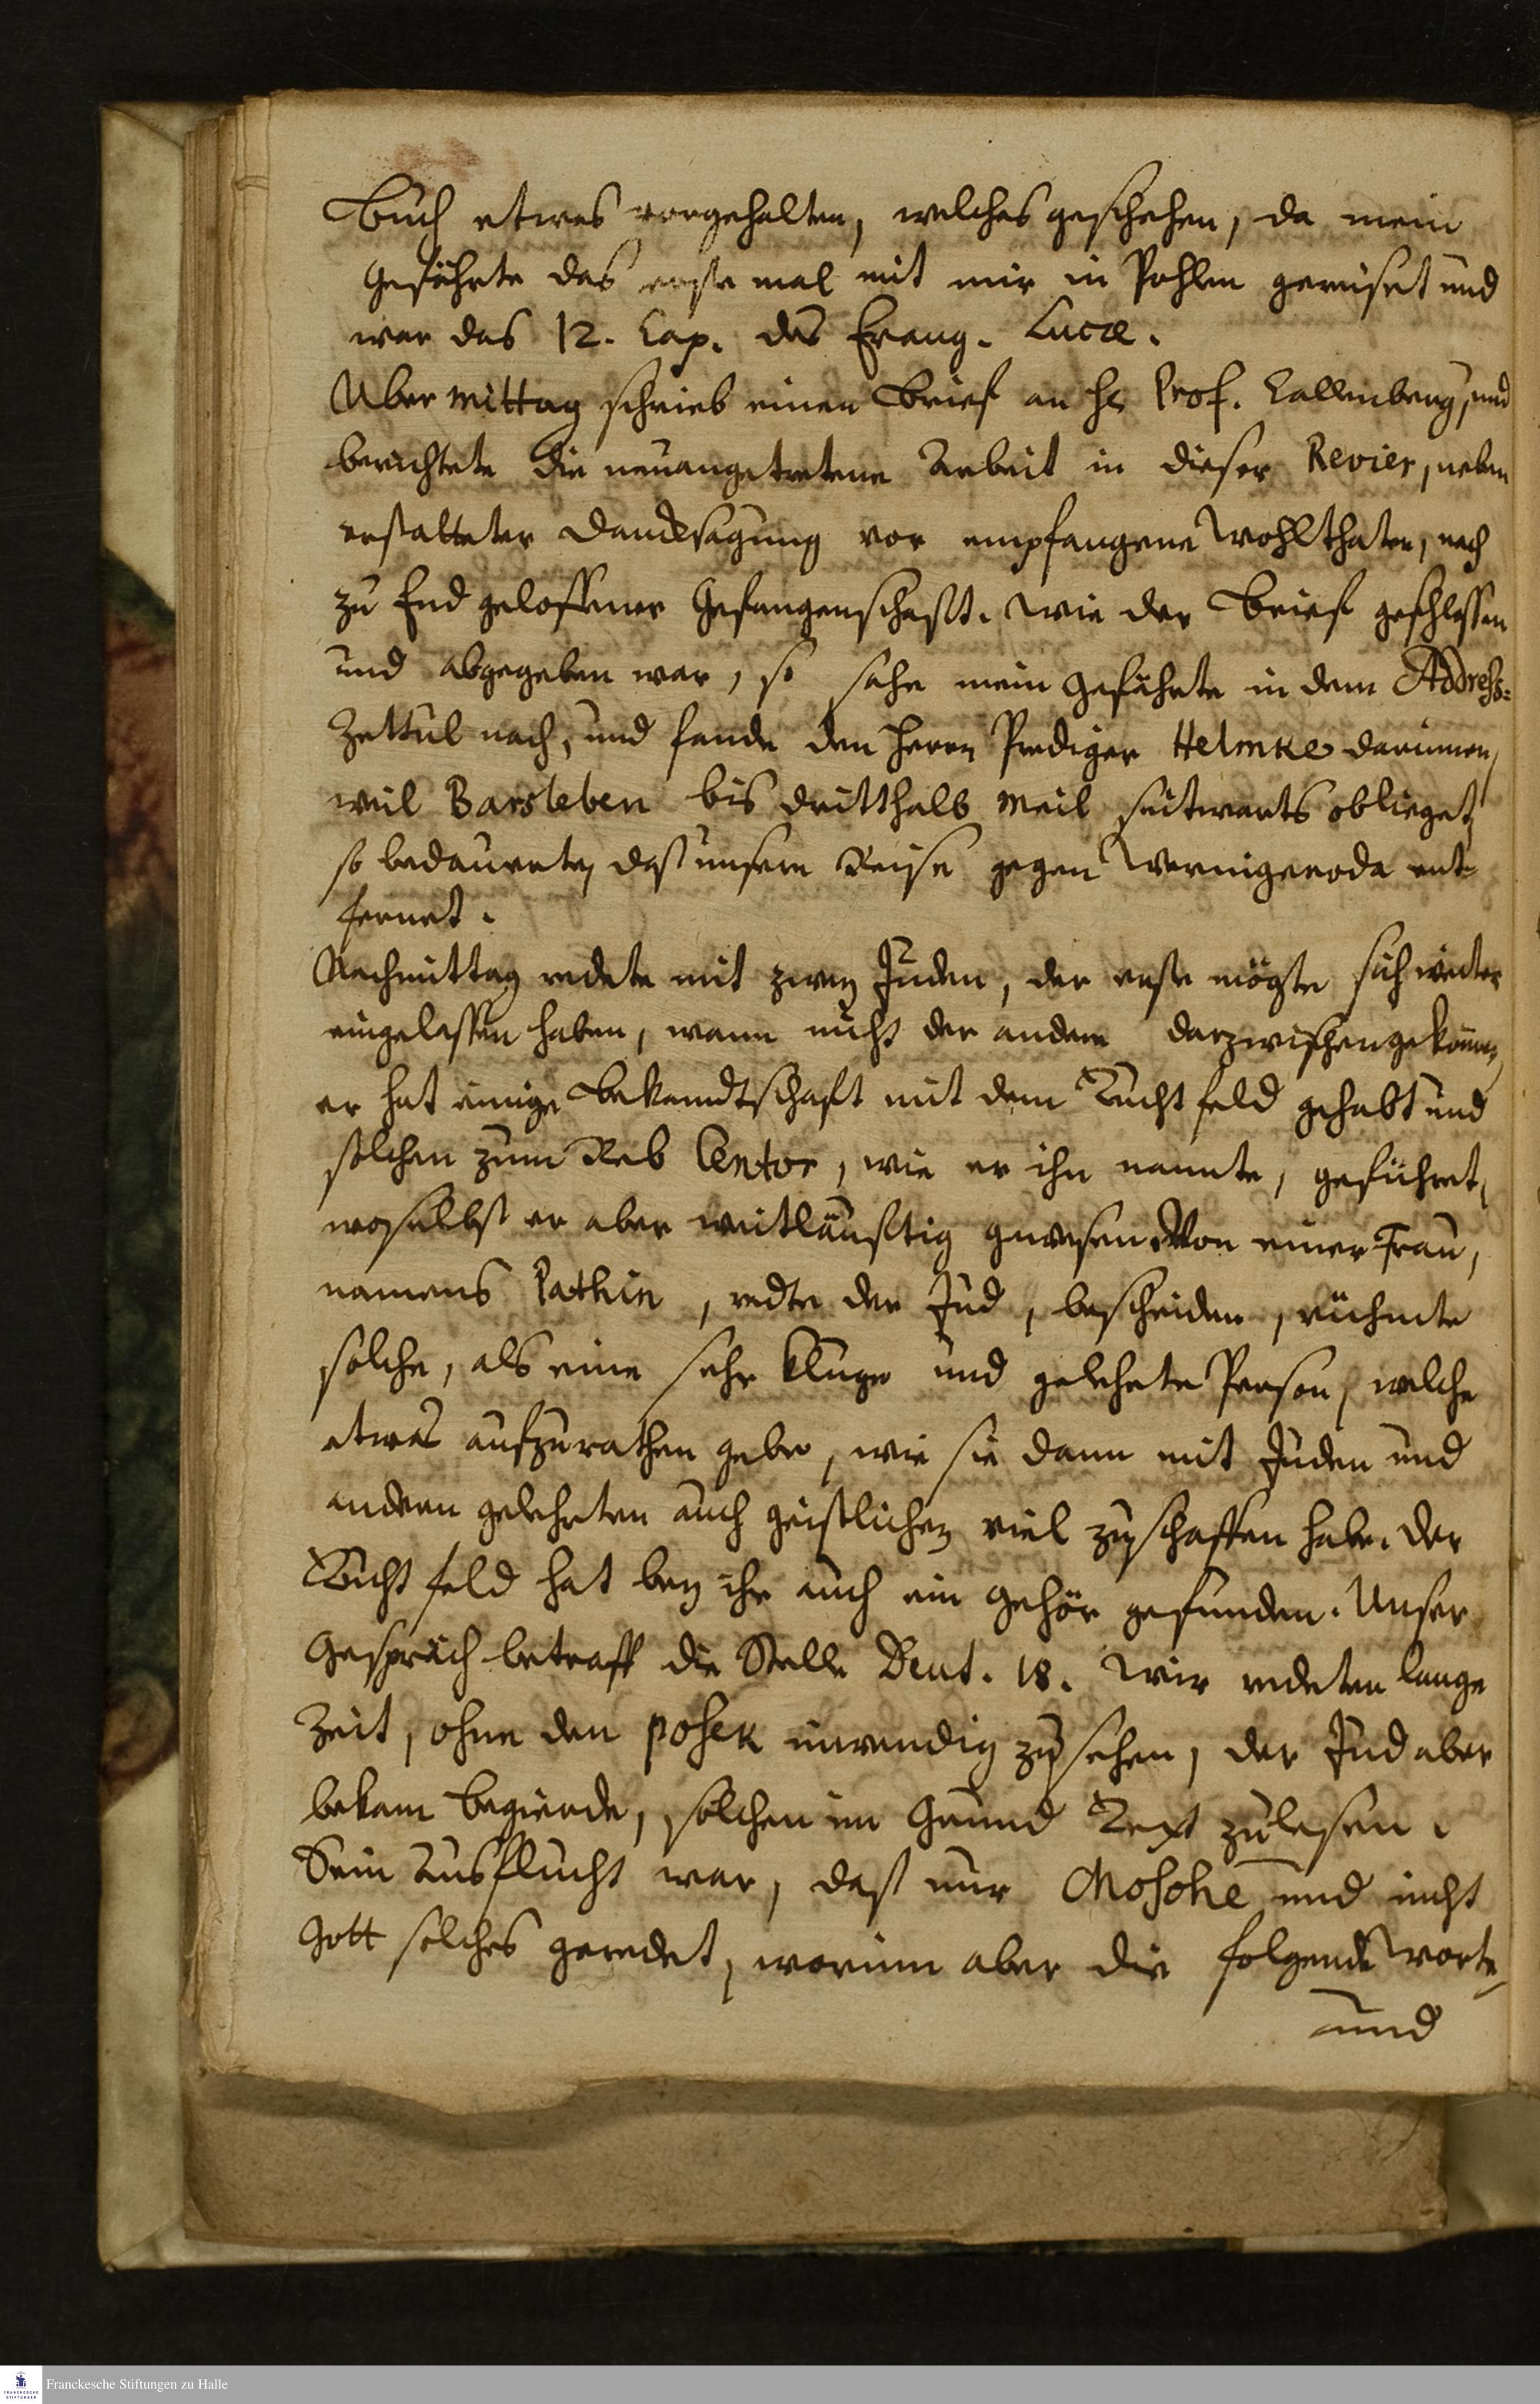 Buch etwas vorgehalten, welches geschehen, da mein
Gefährte das erste mal mit mir in Pohlen gereiset und
war das 12. Cap. des Evang. Lucæ.
Uber Mittag schrieb einen Brief an H. Prof. Callenberg, und
berichtete die neuangetretene Arbeit in dieser Revier, neben
erstatteter Dancksagung vor empfangene Wohlthaten, nach
zu End geloffener Gefangenschafft. Wie der Brief geschlossen
und abgegeben war, so sahe mein Gefährte in dem Address-
Zettul nach, und fande den Herrn Prediger Helmke darinnen,
weil Barsleben bis dritthalb Meil seitwarts oblieget,
so bedaureten, daß unsere Reise gegen Wernigeroda ent-
fernet.
Nachmittag redete mit zwey Juden, der erste mögte sich weiter
eingelassen haben, wann nicht der andere darzwischen gekomen,
er hat einige Bekandtschafft mit dem Tuchtfeld gehabt und
solchen zum Reb Centor, wie er ihn nannte, geführet,
woselbst er aber weitläufftig gewesen. Von einer Frau,
namens Pathin, redte der Jud, bescheiden, rühmte
solche, als eine sehr kluge und gelehrte Person, welche
etwas aufzurathen gebe, wie sie dann mit Juden und
andern gelehrten auch geistlichen viel zu schaffen habe. Der
Tuchtfeld hat bey ihr auch ein Gehör gefunden. Unser
Gespräch betraff die Stelle Deut. 18. Wir redeten lange
Zeit, ohne den posek inwendig zu sehen, der Jud aber
bekam Begierde, solchen im Grund Text zulesen.
Sein Ausflucht war, daß nur Mosche und nicht
Gott solches geredet, worinn aber die folgende Worte,
und
Franckesche Stiftungen zu Halle